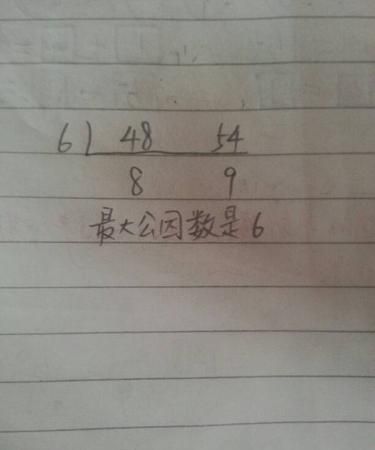 6 48 54
8 9
最大公因数是6